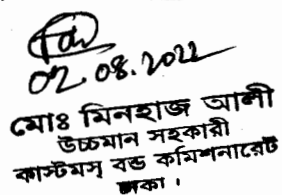 02.08.2022
মোঃ মিনহাজ আলী
উচ্চমান সহকারী
কাস্টমস্ বন্ড কমিশনারেট
ঢাকা।